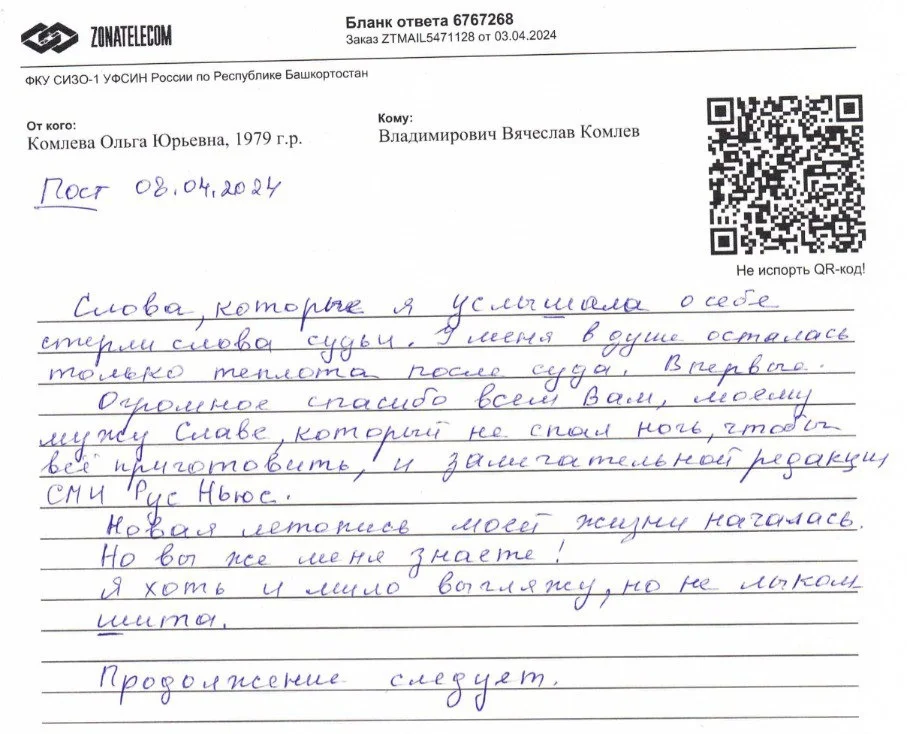 ZONATELECOM
Бланк ответа 6767268
Заказ ZTMAIL5471128 от 03.04.2024
ФКУ СИЗО-1 УФСИН России по Республике Башкортостан
От кого:
Комлева Ольга Юрьевна, 1979 г.р.
Кому:
Владимирович Вячеслав Комлев
Пост 08.04.2024
Не испорть QR-код!
Слова, которые я услышала о себе
стерли слова судьи. У меня в душе осталась
только теплота после суда. Впервые.
Огромное спасибо всем Вам, моему
мужу Славе, который не спал ночь, чтобы
всё приготовить, и замичательной редакции
СМИ Рус Ньюс.
Новая летопись моей жизни началась.
Но вы же меня знаете!
Я хоть и мило выгляжу, но не лыком
шита.
Продолжение следует.